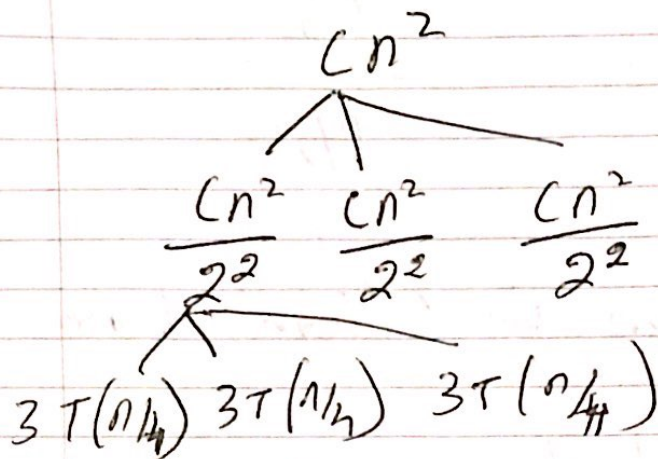 Cn²
Cn²/2² Cn²/2² Cn²/2²
3T(n/4) 3T(n/4) 3T(n/4)